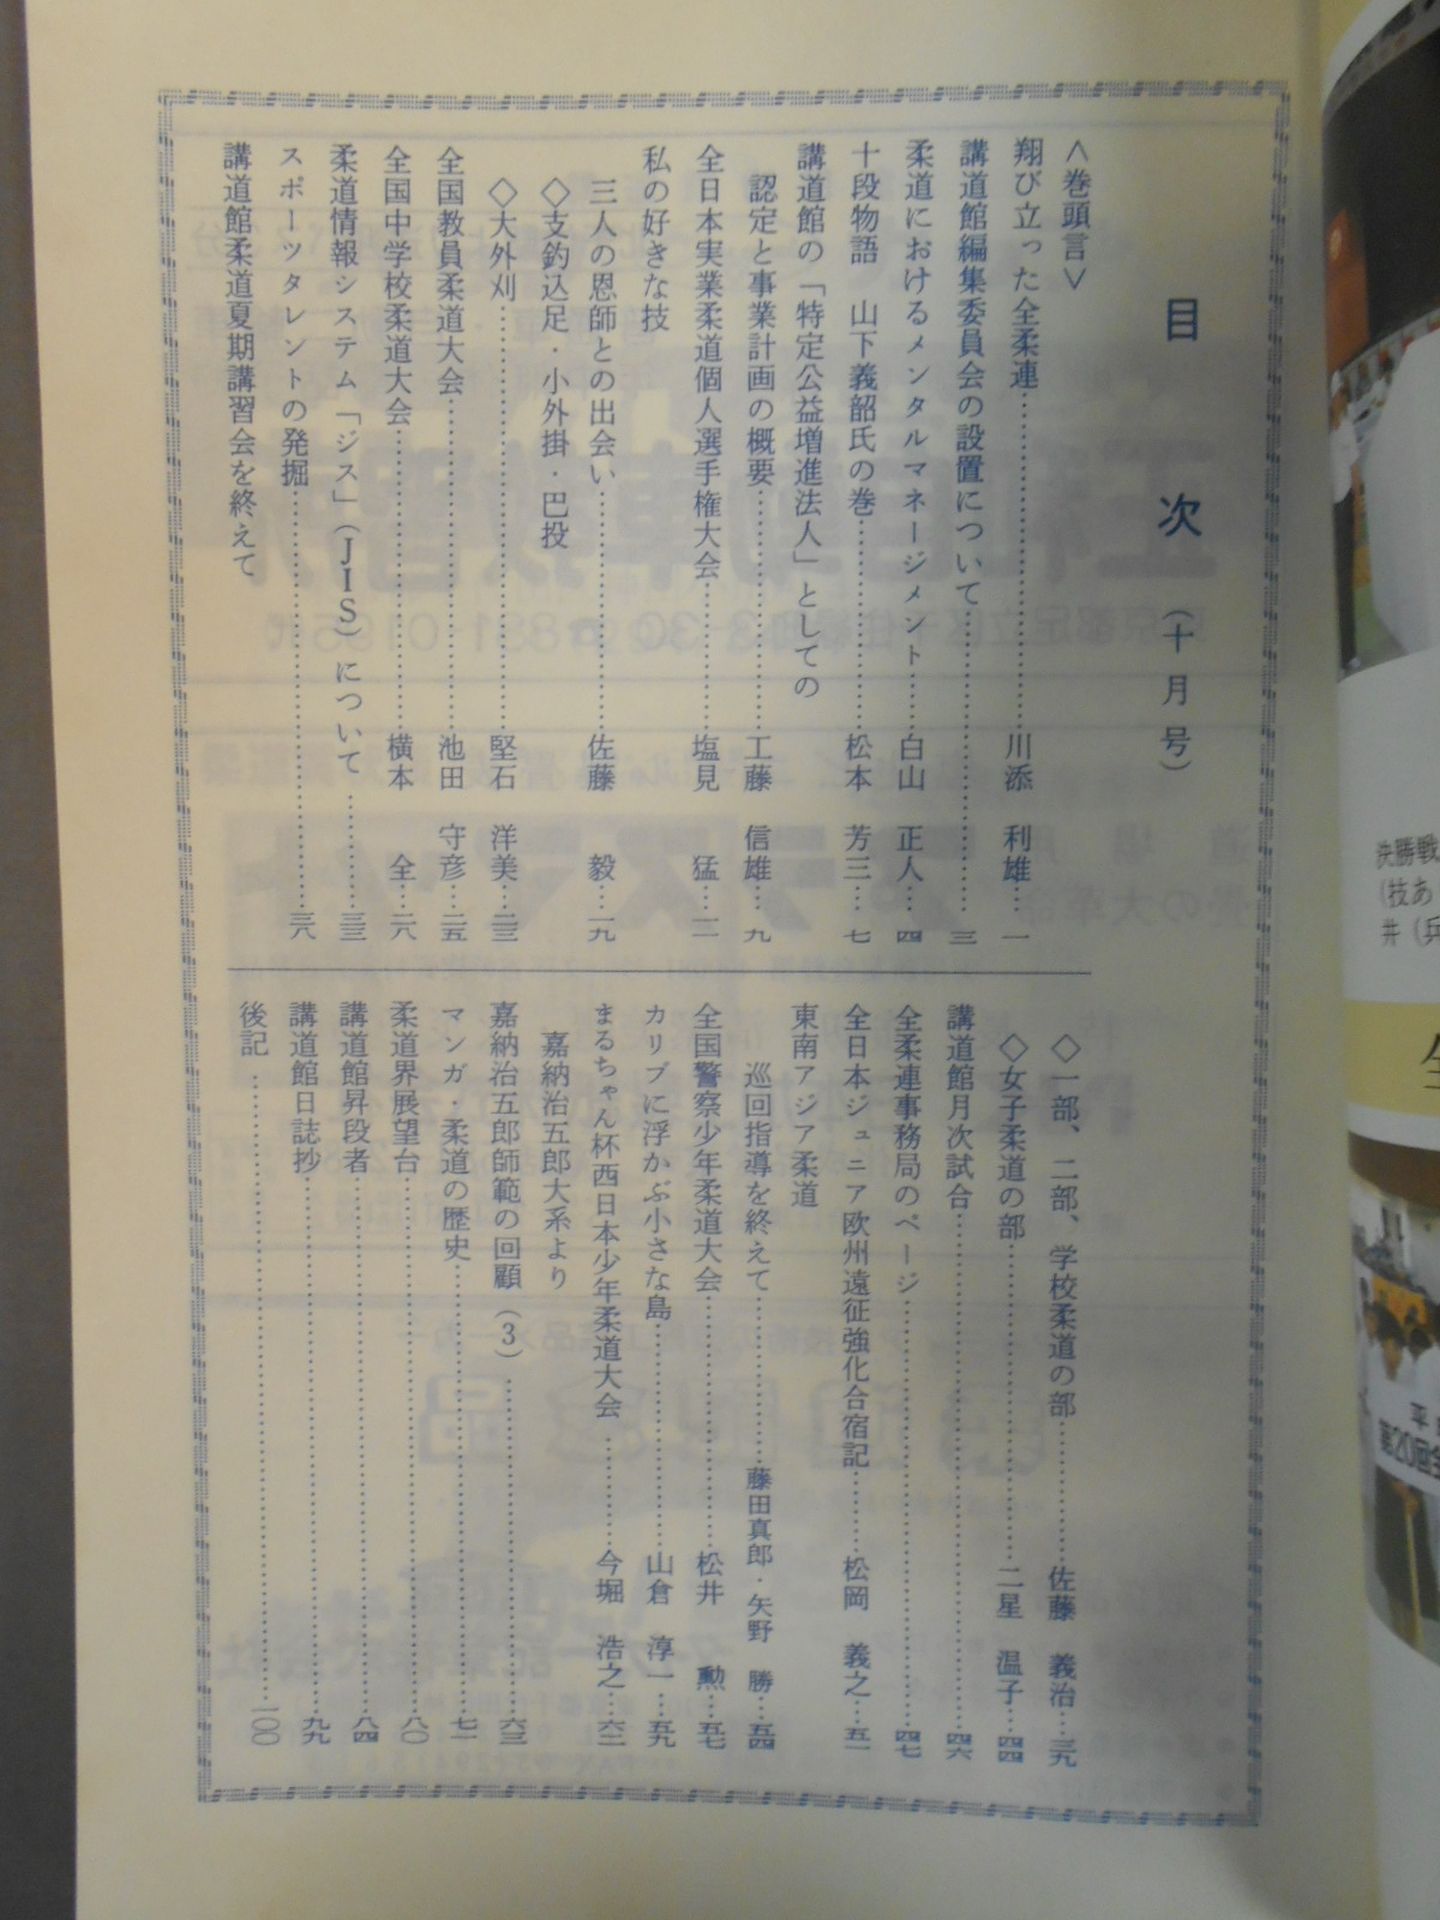 目次（十月号）
＜巻頭言＞
翔び立った全柔連…………川添 利雄…一
講道館編集委員会の設置について…………三
柔道におけるメンタルマネージメント……白山 正人…四
十段物語 山下義韶氏の巻…………松本 芳三…七
講道館の「特定公益増進法人」としての
認定と事業計画の概要…………工藤 信雄…九
全日本実業柔道個人選手権大会…………塩見 猛…一一
私の好きな技
三人の恩師との出会い…………佐藤 毅…一九
◇支釣込足・小外掛・巴投
◇大外刈…………堅石 洋美…二三
全国教員柔道大会…………池田 守彦…二五
全国中学校柔道大会…………横本 全…二八
柔道情報システム「ジス」（JIS）について…………三三
スポーツタレントの発掘…………三八
講道館柔道夏期講習会を終えて
◇一部、二部、学校柔道の部…………佐藤 義治…三九
◇女子柔道の部…………二星 温子…四四
講道館月次試合…………四六
全柔連事務局のページ…………四七
全日本ジュニア欧州遠征強化合宿記…………松岡 義之…五一
東南アジア柔道
巡回指導を終えて…………藤田真郎・矢野 勝…五四
全国警察少年柔道大会…………松井 勲…五七
カリブに浮かぶ小さな島…………山倉 淳一…五九
まるちゃん杯西日本少年柔道大会…………今堀 浩之…六二
嘉納治五郎大系より
嘉納治五郎師範の回顧（3）…………六三
マンガ・柔道の歴史…………七一
柔道界展望台…………八〇
講道館昇段者…………八四
講道館日誌抄…………九九
後記…………一〇〇
決勝戦
（技あ
井（兵
第20回全